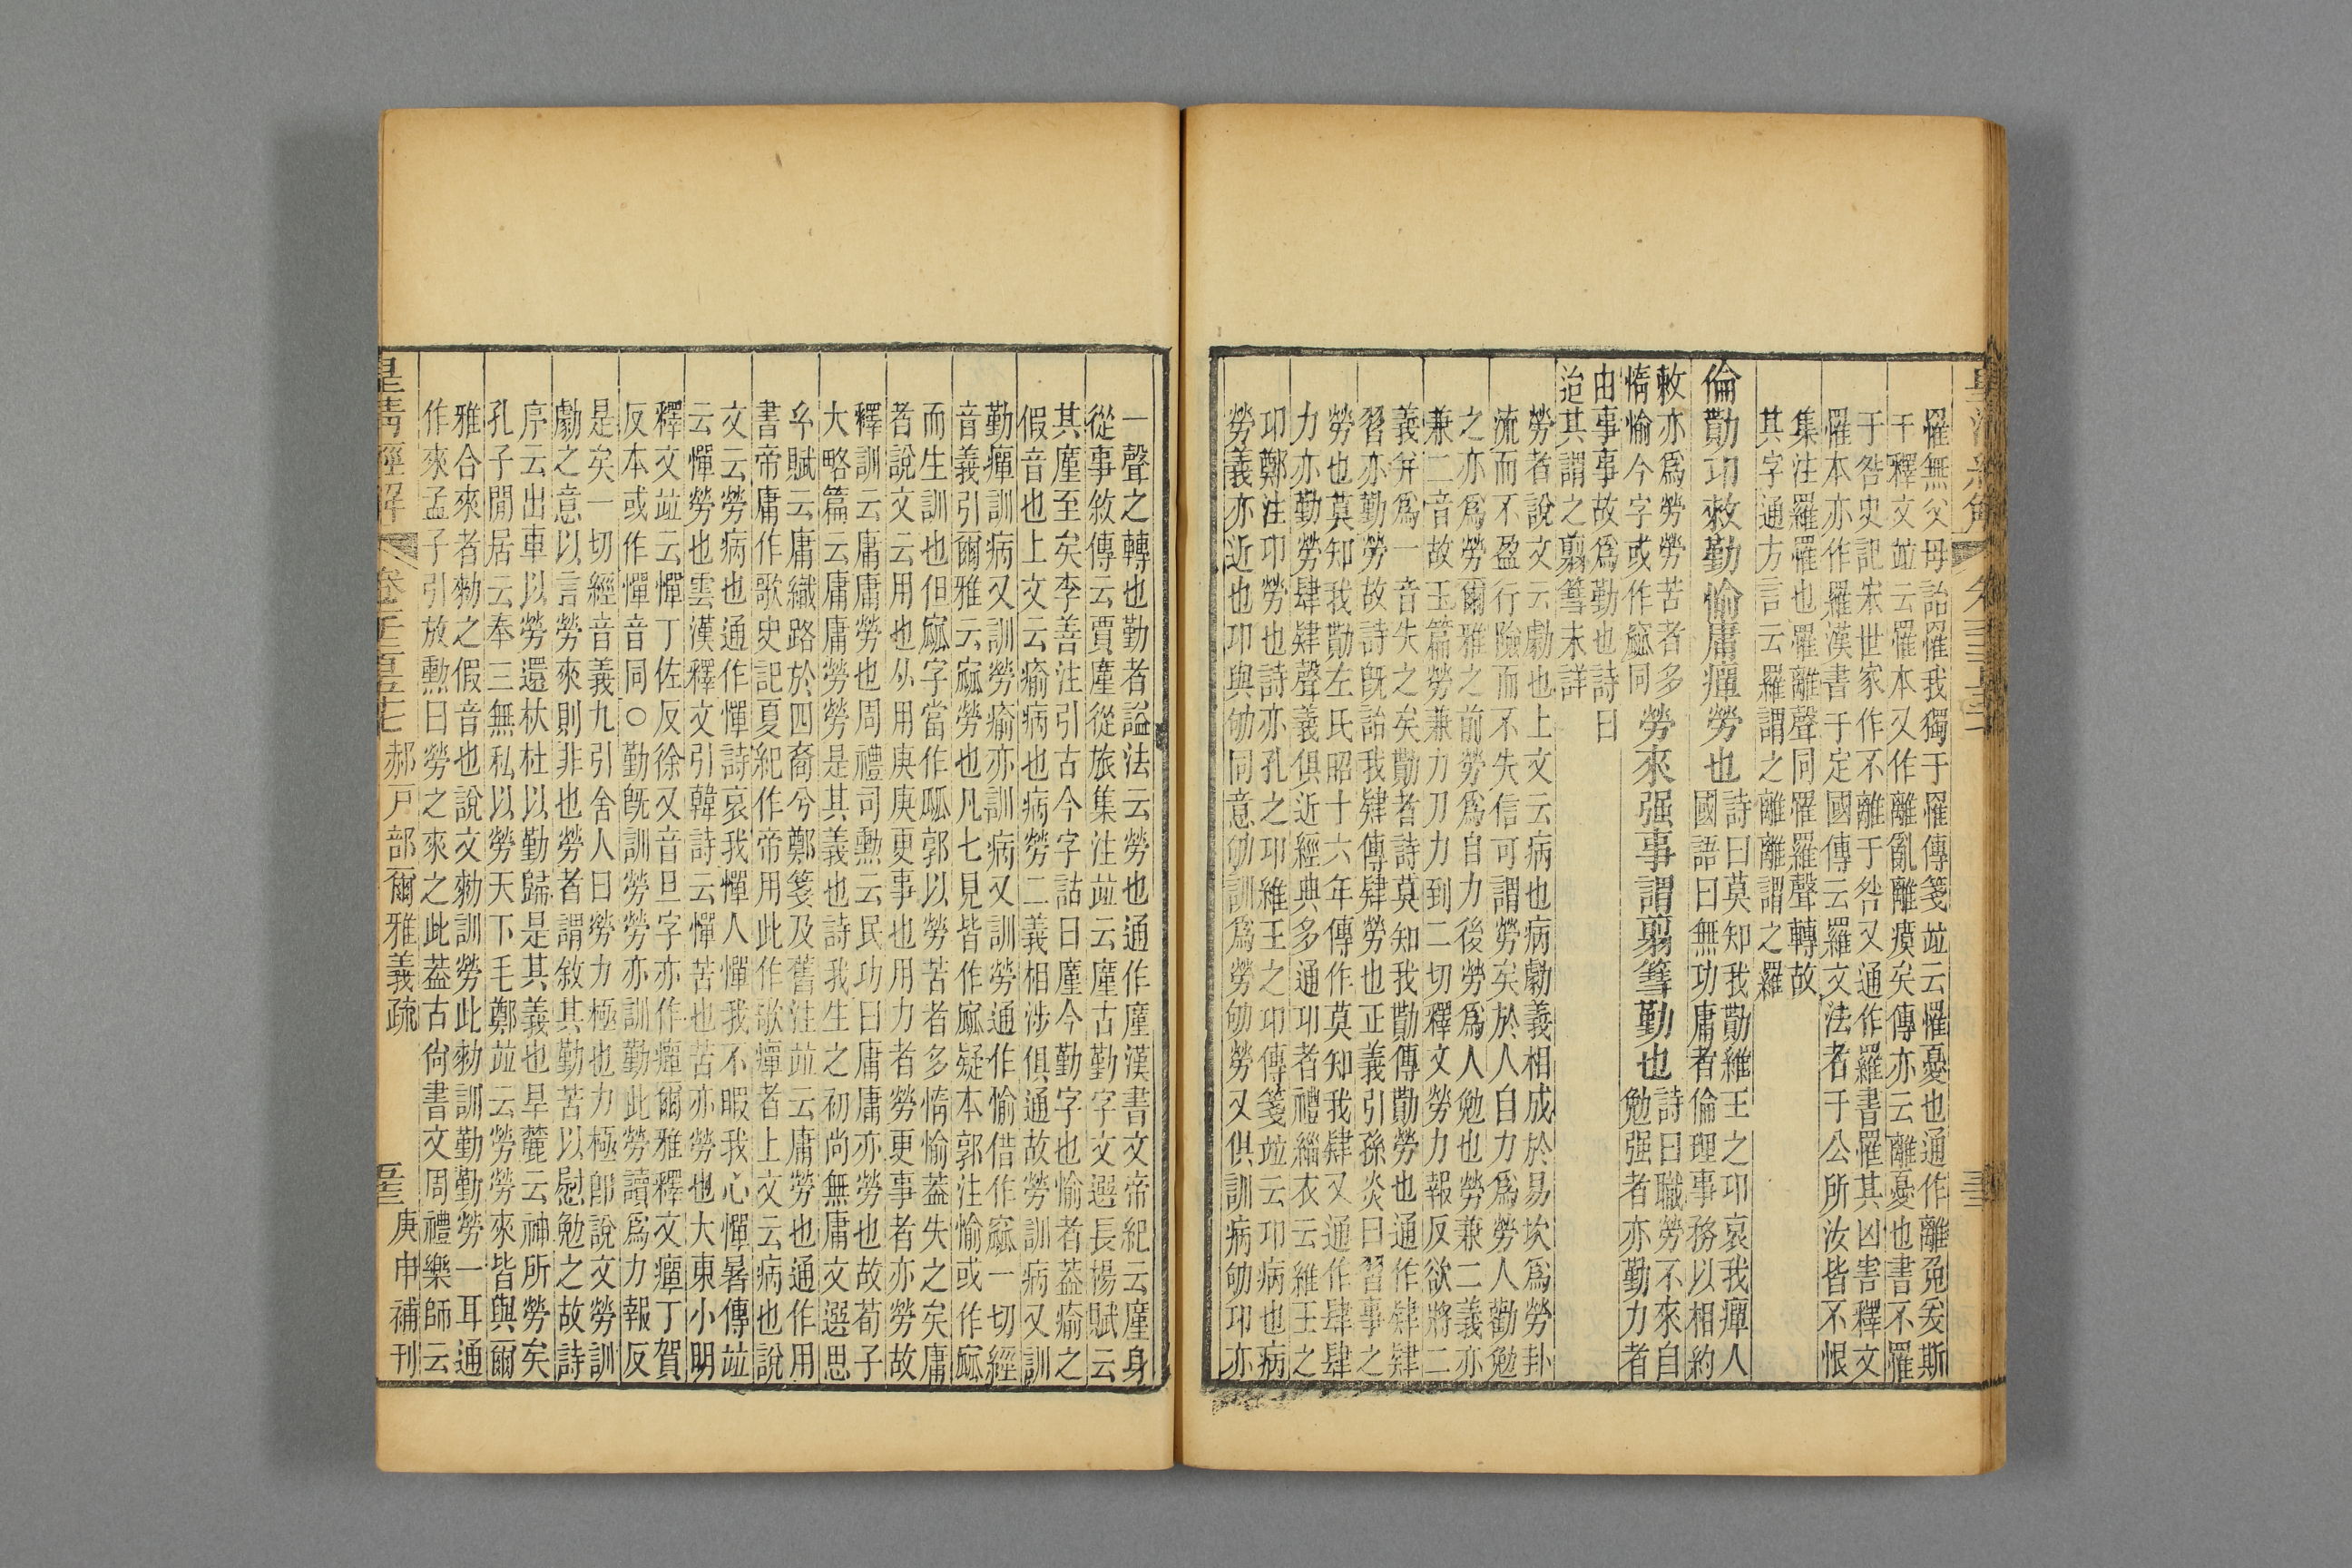 罹無父母詒罹我獨于罹傳箋竝云罹憂也通作離兔爰斯
干釋文竝云罹本又作離亂離瘼矣傳亦云離憂也書不罹
于咎史記宋世家作不離于咎又通作羅書罹其凶害釋文
罹本亦作羅漢書于定國傳云羅文法者于公所汝皆不恨
集注羅罹也罹離聲同罹羅聲轉故
其字通方言云羅謂之離離謂之羅
倫勩卭敕勤愉庸癉勞也
詩曰莫知我勩維王之卭哀我癉人
國語曰無功庸者倫理事務以相約
敕亦爲勞勞苦者多
惰愉今字或作窳同
勞來强事謂翦篲勤也
詩曰職勞不來自
勉强者亦勤力者
由事事故爲勤也詩曰
迨其謂之翦篲未詳
勞者說文云勮也上文云病也病勮義相成於易坎爲勞卦
流而不盈行險而不失信可謂勞矣於人自力爲勞人勸勉
之亦爲勞爾雅之前勞爲自力後勞爲人勉也勞兼二義亦
兼二音故玉篇勞兼力刀力到二切釋文勞力報反欲將二
義并爲一音失之矣勩者詩莫知我勩傳勩勞也通作肄肄
習亦勤勞故詩旣詒我肄傳肄勞也正義引孫炎曰習事之
勞也莫知我勩左氏昭十六年傳作莫知我肄又通作肆肆
力亦勤勞肆肄聲義俱近經典多通卭者禮緇衣云維王之
卭鄭注卭勞也詩亦孔之卭維王之卭傳箋竝云卭病也病
勞義亦近也卭與劬同意劬訓爲勞劬勞又俱訓病劬卭亦
一聲之轉也勤者諡法云勞也通作廑漢書文帝紀云廑身
從事敘傳云賈廑從旅集注竝云廑古勤字文選長楊賦云
其廑至矣李善注引古今字詁曰廑今勤字也愉者葢瘉之
假音也上文云瘉病也病勞二義相涉俱通故勞訓病又訓
勤癉訓病又訓勞瘉亦訓病又訓勞通作愉借作窳一切經
音義引爾雅云窳勞也凡七見皆作窳疑本郭注愉或作窳
而生訓也但窳字當作㼌郭以勞苦者多惰愉葢失之矣庸
者說文云用也从用庚庚更事也用力者勞更事者亦勞故
釋訓云庸庸勞也周禮司勲云民功曰庸庸亦勞也故荀子
大略篇云庸庸勞勞是其義也詩我生之初尚無庸文選思
幺賦云庸織路於四裔兮鄭箋及舊注竝云庸勞也通作用
書帝庸作歌史記夏紀作帝用此作歌癉者上文云病也說
文云勞病也通作憚詩哀我憚人憚我不暇我心憚暑傳竝
云憚勞也雲漢釋文引韓詩云憚苦也苦亦勞也大東小明
釋文竝云憚丁佐反徐又音旦字亦作癉爾雅釋文癉丁賀
反本或作憚音同○勤旣訓勞勞亦訓勤此勞讀爲力報反
是矣一切經音義九引舍人曰勞力極也力極卽說文勞訓
勮之意以言勞來則非也勞者謂敘其勤苦以慰勉之故詩
序云出車以勞還杕杜以勤歸是其義也旱麓云神所勞矣
孔子閒居云奉三無私以勞天下毛鄭竝云勞勞來皆與爾
雅合來者勑之假音也說文勑訓勞此勑訓勤勤勞一耳通
作來孟子引放勲曰勞之來之此葢古尙書文周禮樂師云
皇清經解 郝戸部爾雅義疏 庚申補刊